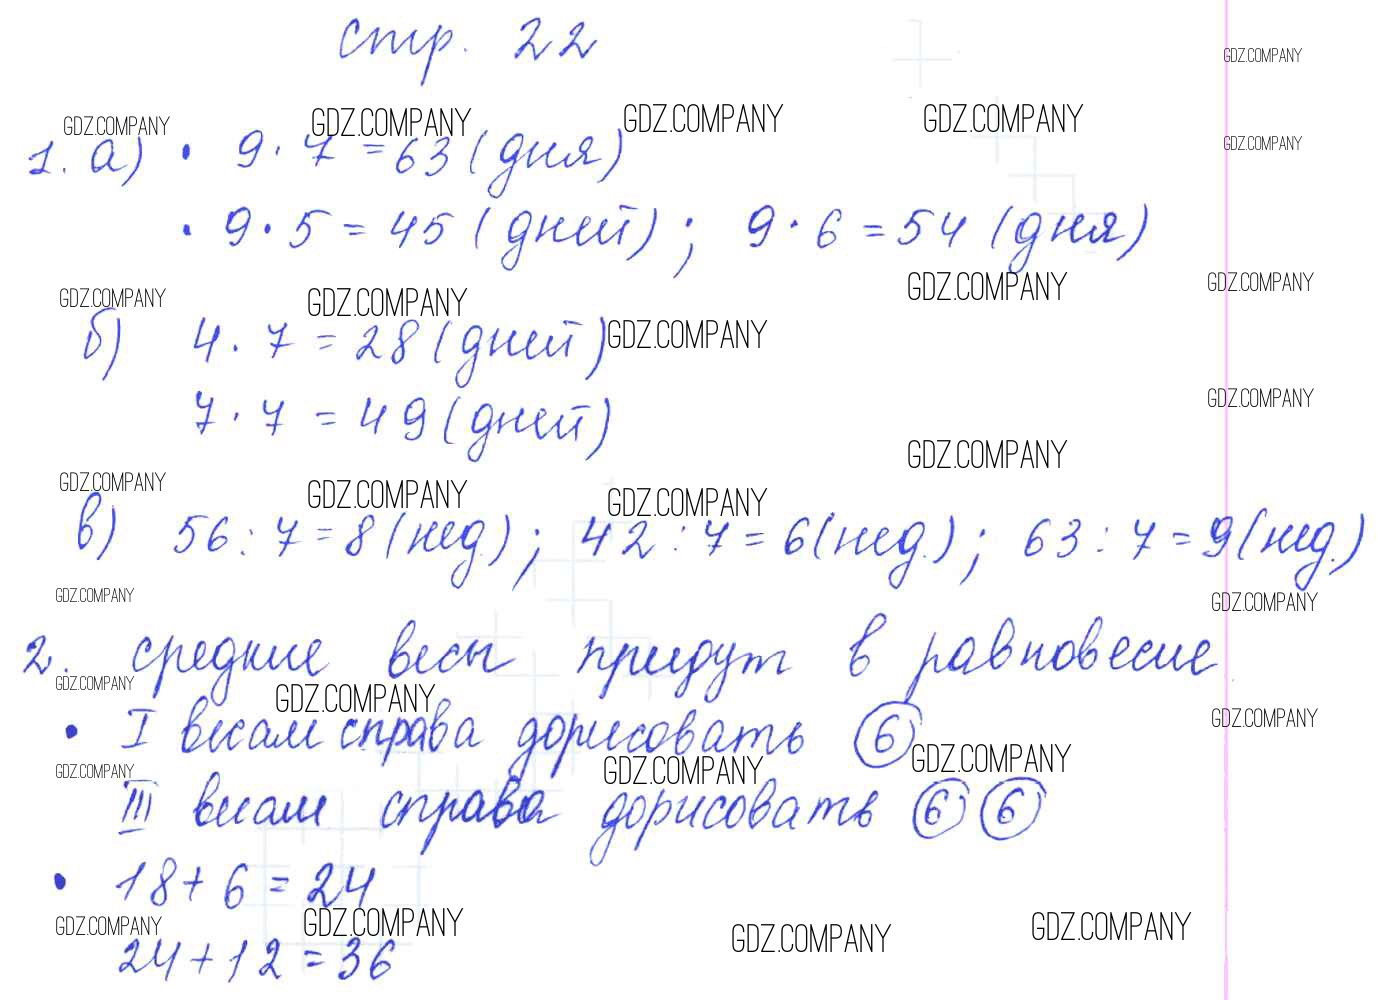 стр. 22
GDZ.COMPANY
GDZ.COMPANY GDZ.COMPANY GDZ.COMPANY GDZ.COMPANY
GDZ.COMPANY
1. а) • 9 · 7 = 63 (дня)
• 9 · 5 = 45 (дней); 9 · 6 = 54 (дня)
GDZ.COMPANY GDZ.COMPANY GDZ.COMPANY GDZ.COMPANY
б) 4 · 7 = 28 (дней) GDZ.COMPANY
GDZ.COMPANY
7 · 7 = 49 (дней)
GDZ.COMPANY
GDZ.COMPANY GDZ.COMPANY GDZ.COMPANY
в) 56 : 7 = 8 (нед.); 42 : 7 = 6 (нед.); 63 : 7 = 9 (нед.)
GDZ.COMPANY GDZ.COMPANY
2. средние весы придут в равновесие
GDZ.COMPANY GDZ.COMPANY GDZ.COMPANY
• I весам справа дорисовать 6
GDZ.COMPANY GDZ.COMPANY GDZ.COMPANY
III весам справа дорисовать 6 6
• 18 + 6 = 24
GDZ.COMPANY GDZ.COMPANY GDZ.COMPANY GDZ.COMPANY
24 + 12 = 36